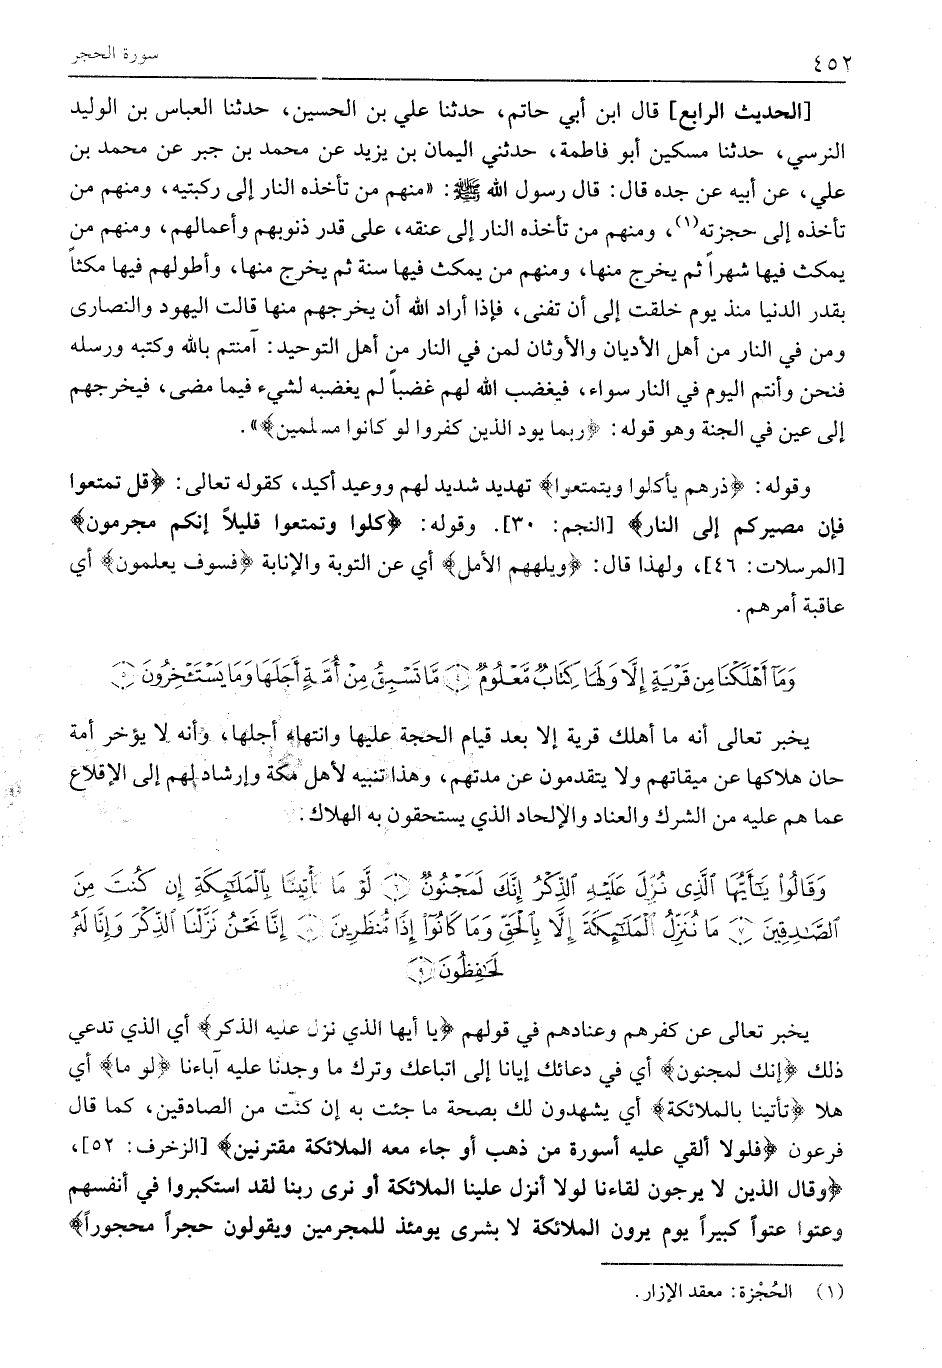 ٤٥٢ سورة الحجر
[الحديث الرابع] قال ابن أبي حاتم، حدثنا علي بن الحسين، حدثنا العباس بن الوليد
النرسي، حدثنا مسكين أبو فاطمة، حدثني اليمان بن يزيد عن محمد بن جبر عن محمد بن
علي، عن أبيه عن جده قال: قال رسول الله ﷺ: «منهم من تأخذه النار إلى ركبتيه، ومنهم من
تأخذه إلى حجزته(١)، ومنهم من تأخذه النار إلى عنقه، على قدر ذنوبهم وأعمالهم، ومنهم من
يمكث فيها شهراً ثم يخرج منها، ومنهم من يمكث فيها سنة ثم يخرج منها، وأطولهم فيها مكثاً
بقدر الدنيا منذ يوم خلقت إلى أن تفنى، فإذا أراد الله أن يخرجهم منها قالت اليهود والنصارى
ومن في النار من أهل الأديان والأوثان لمن في النار من أهل التوحيد: آمنتم بالله وكتبه ورسله
فنحن وأنتم اليوم في النار سواء، فيغضب الله لهم غضباً لم يغضبه لشيء فيما مضى، فيخرجهم
إلى عين في الجنة وهو قوله: ﴿ربما يود الذين كفروا لو كانوا مسلمين﴾».
وقوله: ﴿ذرهم يأكلوا ويتمتعوا﴾ تهديد شديد لهم ووعيد أكيد، كقوله تعالى: ﴿قل تمتعوا
فإن مصيركم إلى النار﴾ [النجم: ٣٠]. وقوله: ﴿كلوا وتمتعوا قليلاً إنكم مجرمون﴾
[المرسلات: ٤٦]، ولهذا قال: ﴿ويلههم الأمل﴾ أي عن التوبة والإنابة ﴿فسوف يعلمون﴾ أي
عاقبة أمرهم.
وَمَآ أَهْلَكْنَا مِن قَرْيَةٍ إِلَّا وَلَهَا كِتَابٌ مَّعْلُومٌ ﴿٤﴾ مَّا تَسْبِقُ مِنْ أُمَّةٍ أَجَلَهَا وَمَا يَسْتَـْٔخِرُونَ ﴿٥﴾
يخبر تعالى أنه ما أهلك قرية إلا بعد قيام الحجة عليها وانتهاء أجلها، وأنه لا يؤخر أمة
حان هلاكها عن ميقاتهم ولا يتقدمون عن مدتهم، وهذا تنبيه لأهل مكة وإرشاد لهم إلى الإقلاع
عما هم عليه من الشرك والعناد والإلحاد الذي يستحقون به الهلاك:
وَقَالُوا۟ يَـٰٓأَيُّهَا ٱلَّذِى نُزِّلَ عَلَيْهِ ٱلذِّكْرُ إِنَّكَ لَمَجْنُونٌ ﴿٦﴾ لَّوْ مَا تَأْتِينَا بِٱلْمَلَـٰٓئِكَةِ إِن كُنتَ مِنَ
ٱلصَّـٰدِقِينَ ﴿٧﴾ مَا نُنَزِّلُ ٱلْمَلَـٰٓئِكَةَ إِلَّا بِٱلْحَقِّ وَمَا كَانُوٓا۟ إِذًا مُّنظَرِينَ ﴿٨﴾ إِنَّا نَحْنُ نَزَّلْنَا ٱلذِّكْرَ وَإِنَّا لَهُۥ
لَحَـٰفِظُونَ ﴿٩﴾
يخبر تعالى عن كفرهم وعنادهم في قولهم ﴿يا أيها الذي نزل عليه الذكر﴾ أي الذي تدعي
ذلك ﴿إنك لمجنون﴾ أي في دعائك إيانا إلى اتباعك وترك ما وجدنا عليه آباءنا ﴿لو ما﴾ أي
هلا ﴿تأتينا بالملائكة﴾ أي يشهدون لك بصحة ما جئت به إن كنت من الصادقين، كما قال
فرعون ﴿فلولا ألقي عليه أسورة من ذهب أو جاء معه الملائكة مقترنين﴾ [الزخرف: ٥٢]،
﴿وقال الذين لا يرجون لقاءنا لولا أنزل علينا الملائكة أو نرى ربنا لقد استكبروا في أنفسهم
وعتوا عتواً كبيراً يوم يرون الملائكة لا بشرى يومئذ للمجرمين ويقولون حجراً محجوراً﴾
(١) الحُجْزة: معقد الإزار.